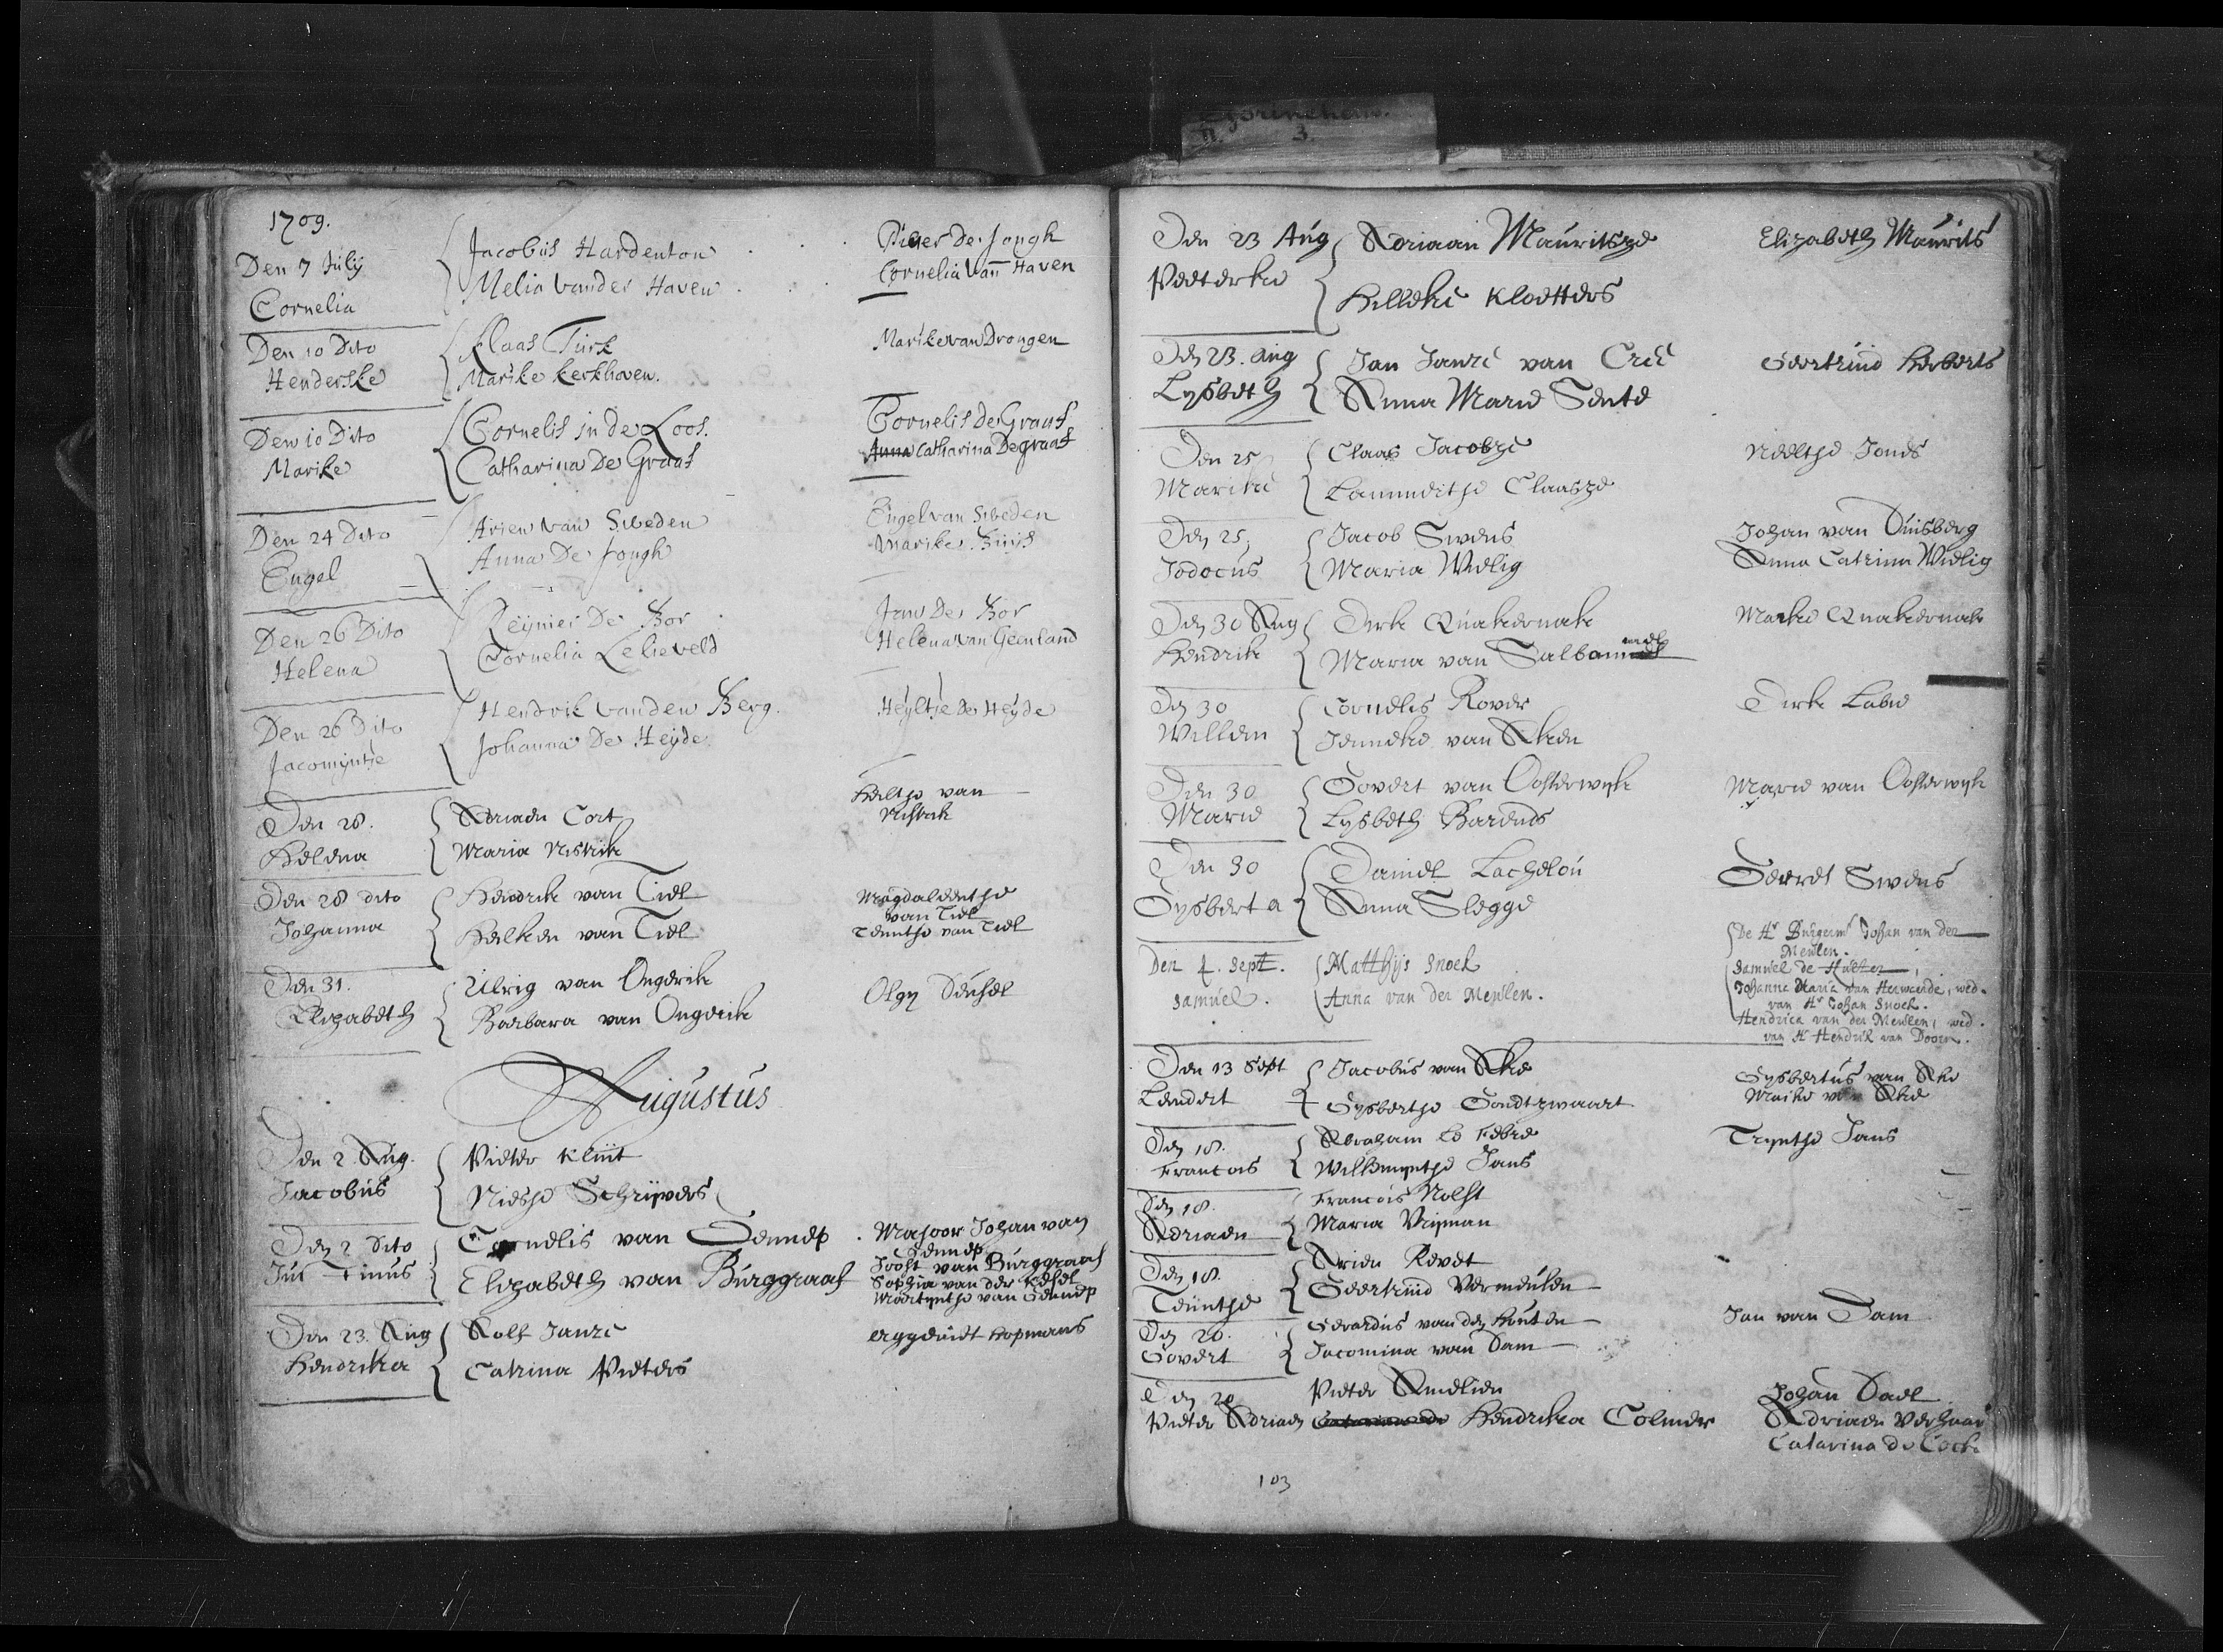 Gorinchem.
11. 3.
1709.
Den 7 Julij
Cornelia
Jacobus Hardenton
Melia vander Haven
Pieter De Jongh
Cornelia van Haven
Den 10 Dito
Henderske
Klaas Turk
Marike Kerkhoven.
Marike van Drongen
Den 10 Dito
Marike
Cornelis in de Loos.
Catharina De Graaf
Cornelis De Graaf
Anna Catharina De graaf
Den 24 Dito
Engel
Arien van Sweden
Anna De Jongh
Engel van Sweden
Marike
Den 26 Dito
Helena
Reijnier De Bor
Cornelia Lelieveld
Jan De Bor
Helena van Geenland
Den 26 Dito
Jacomijntie
Hendrik vanden Berg.
Johanna De Heijde
Heijltje De Heijde
Den 28.
Helena
Adriaen Cort
Maria
van
Den 28 dito
Johanna
Hendrik van Tiel
van Tiel
Magdaleentje
van Tiel
Teuntje van Tiel
Den 31.
Elizabeth
Ulrig van Ongerik
Barbara van Ongerik
Augustus
Den 2 Aug.
Jacobus
Pieter Kluit
Schrijvers
Den 2 Dito
Justinus
Cornelis van Gennep
Elizabeth van Burggraaf
Majoor Johan van
Gennep
Joost van Burggraaf
Sophia van der Kesel
Martyntje van Gennep
Den 23. Aug
Hendrika
Rolf Janze
Catrina Pieters
Hopmans
Den 23 Aug
Peeterke
Adriaan Mauritsze
Hilleke Kloetters
Elizabeth Maurits
Den 23. Aug
Lysbeth
Jan Janze van Cree
Anna Marie Sente
Geertruid Herberts
Den 25
Marike
Claas Jacobze
Lammeritje Claasze
Neeltje Jones
Den 25
Jodocus
Jacob Swens
Maria Welig
Johan van Duisberg
Anna Catrina Welig
Den 30 Aug
Hendrik
Dirk Quakernak
Maria van Salbommel
Quakernak
Den 30
Willem
Cornelis Rover
Jenneke van Aken
Dirk
Den 30
Marie
Govert van Oosterwijk
Lysbeth Barends
Marie van Oosterwijk
Den 30
Gysberta
Daniel Lachelou
Anna Slegge
Geeret Swens
Den 4. Sept.
Samuel.
Matthijs Snoek
Anna van der Meulen.
De Hr Burgerm Johan van der
Meulen.
Samuel de Hulter
Johanna Maria van Herwaerde, wed.
van Hr Johan Snoek.
Hendrica van der Meulen, wed.
van Hr Hendrik van Doorn.
Den 13 Sept
Lendert
Jacobus van Ake
Gysbertje Goudtzwaart
Gysbertus van Ake
Maike van Ake
Den 18.
Francois
Abraham le Febre
Willemyntje Jans
Tryntje Jans
Den 18.
Adriaen
Francois Nolst
Maria Vrijman
Den 18.
Teuntje
Arien Revet
Geertruid Vermeulen
Den 20.
Govert
Gerardus van den Houten
Jacomina van Dam
Jan van Dam
Den 20
Pieter Adriaen
Pieter Amelien
Hendrika Colmer
Johan Dael
Adriaen Verhaar
Catarina de Cock
103